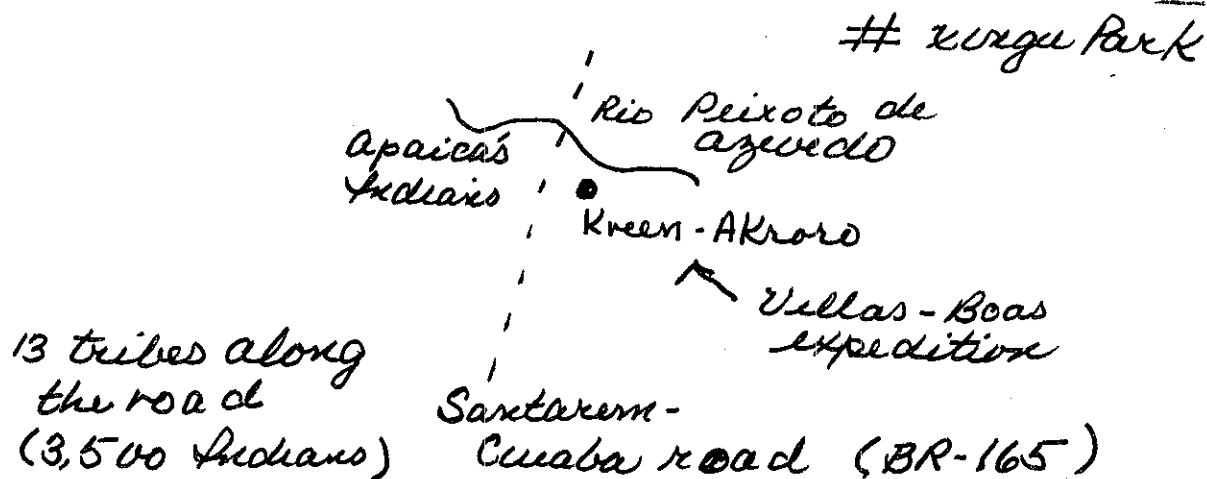 # xingu Park
Rio Peixoto de
azevedo
apaicás
Indians
Kreen-AKroro
Villas-Boas
expedition
13 tribes along
the road
(3,500 Indians)
Santarem-
Cuiaba road (BR-165)